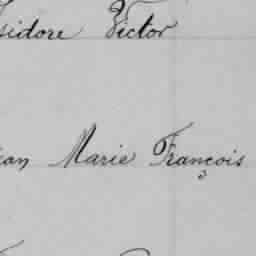 Isidore Victor
Jean Marie François